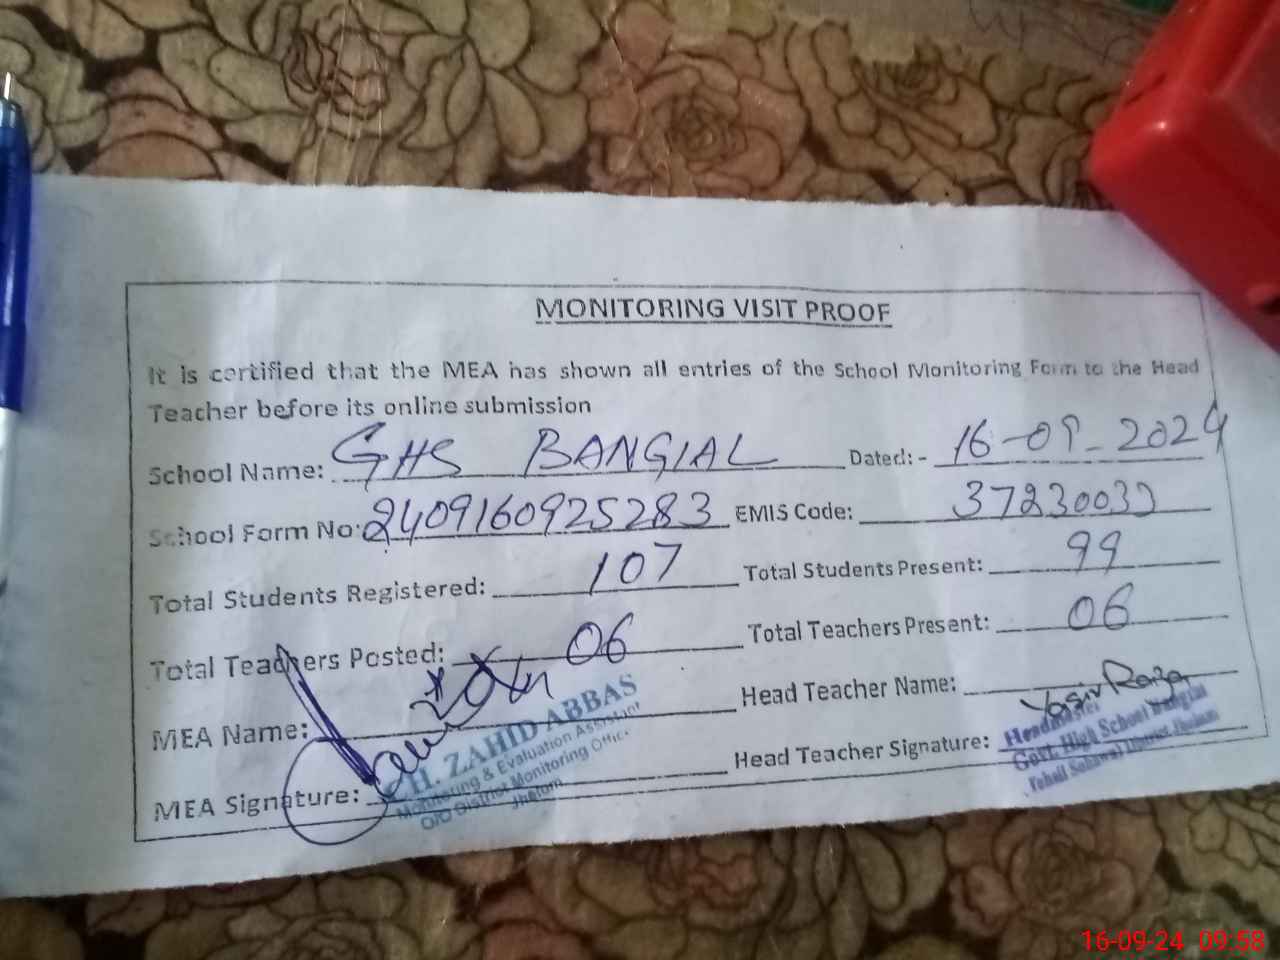 MONITORING VISIT PROOF
It is certified that the MEA has shown all entries of the School Monitoring Form to the Head
Teacher before its online submission
School Name: GHS BANGIAL Dated: - 16-09-2024
School Form No: 2409160925283 EMIS Code: 37230033
Total Students Registered: 107 Total Students Present: 99
Total Teachers Posted: 06 Total Teachers Present: 06
MEA Name: Head Teacher Name: Yasir Raza
MEA Signature: Head Teacher Signature:
CH. ZAHID ABBAS
Monitoring & Evaluation Assistant
O/O District Monitoring Officer
Jhelum
Headmaster
Govt. High School Bangial
Tehsil Sohawa District Jhelum
16-09-24 09:58